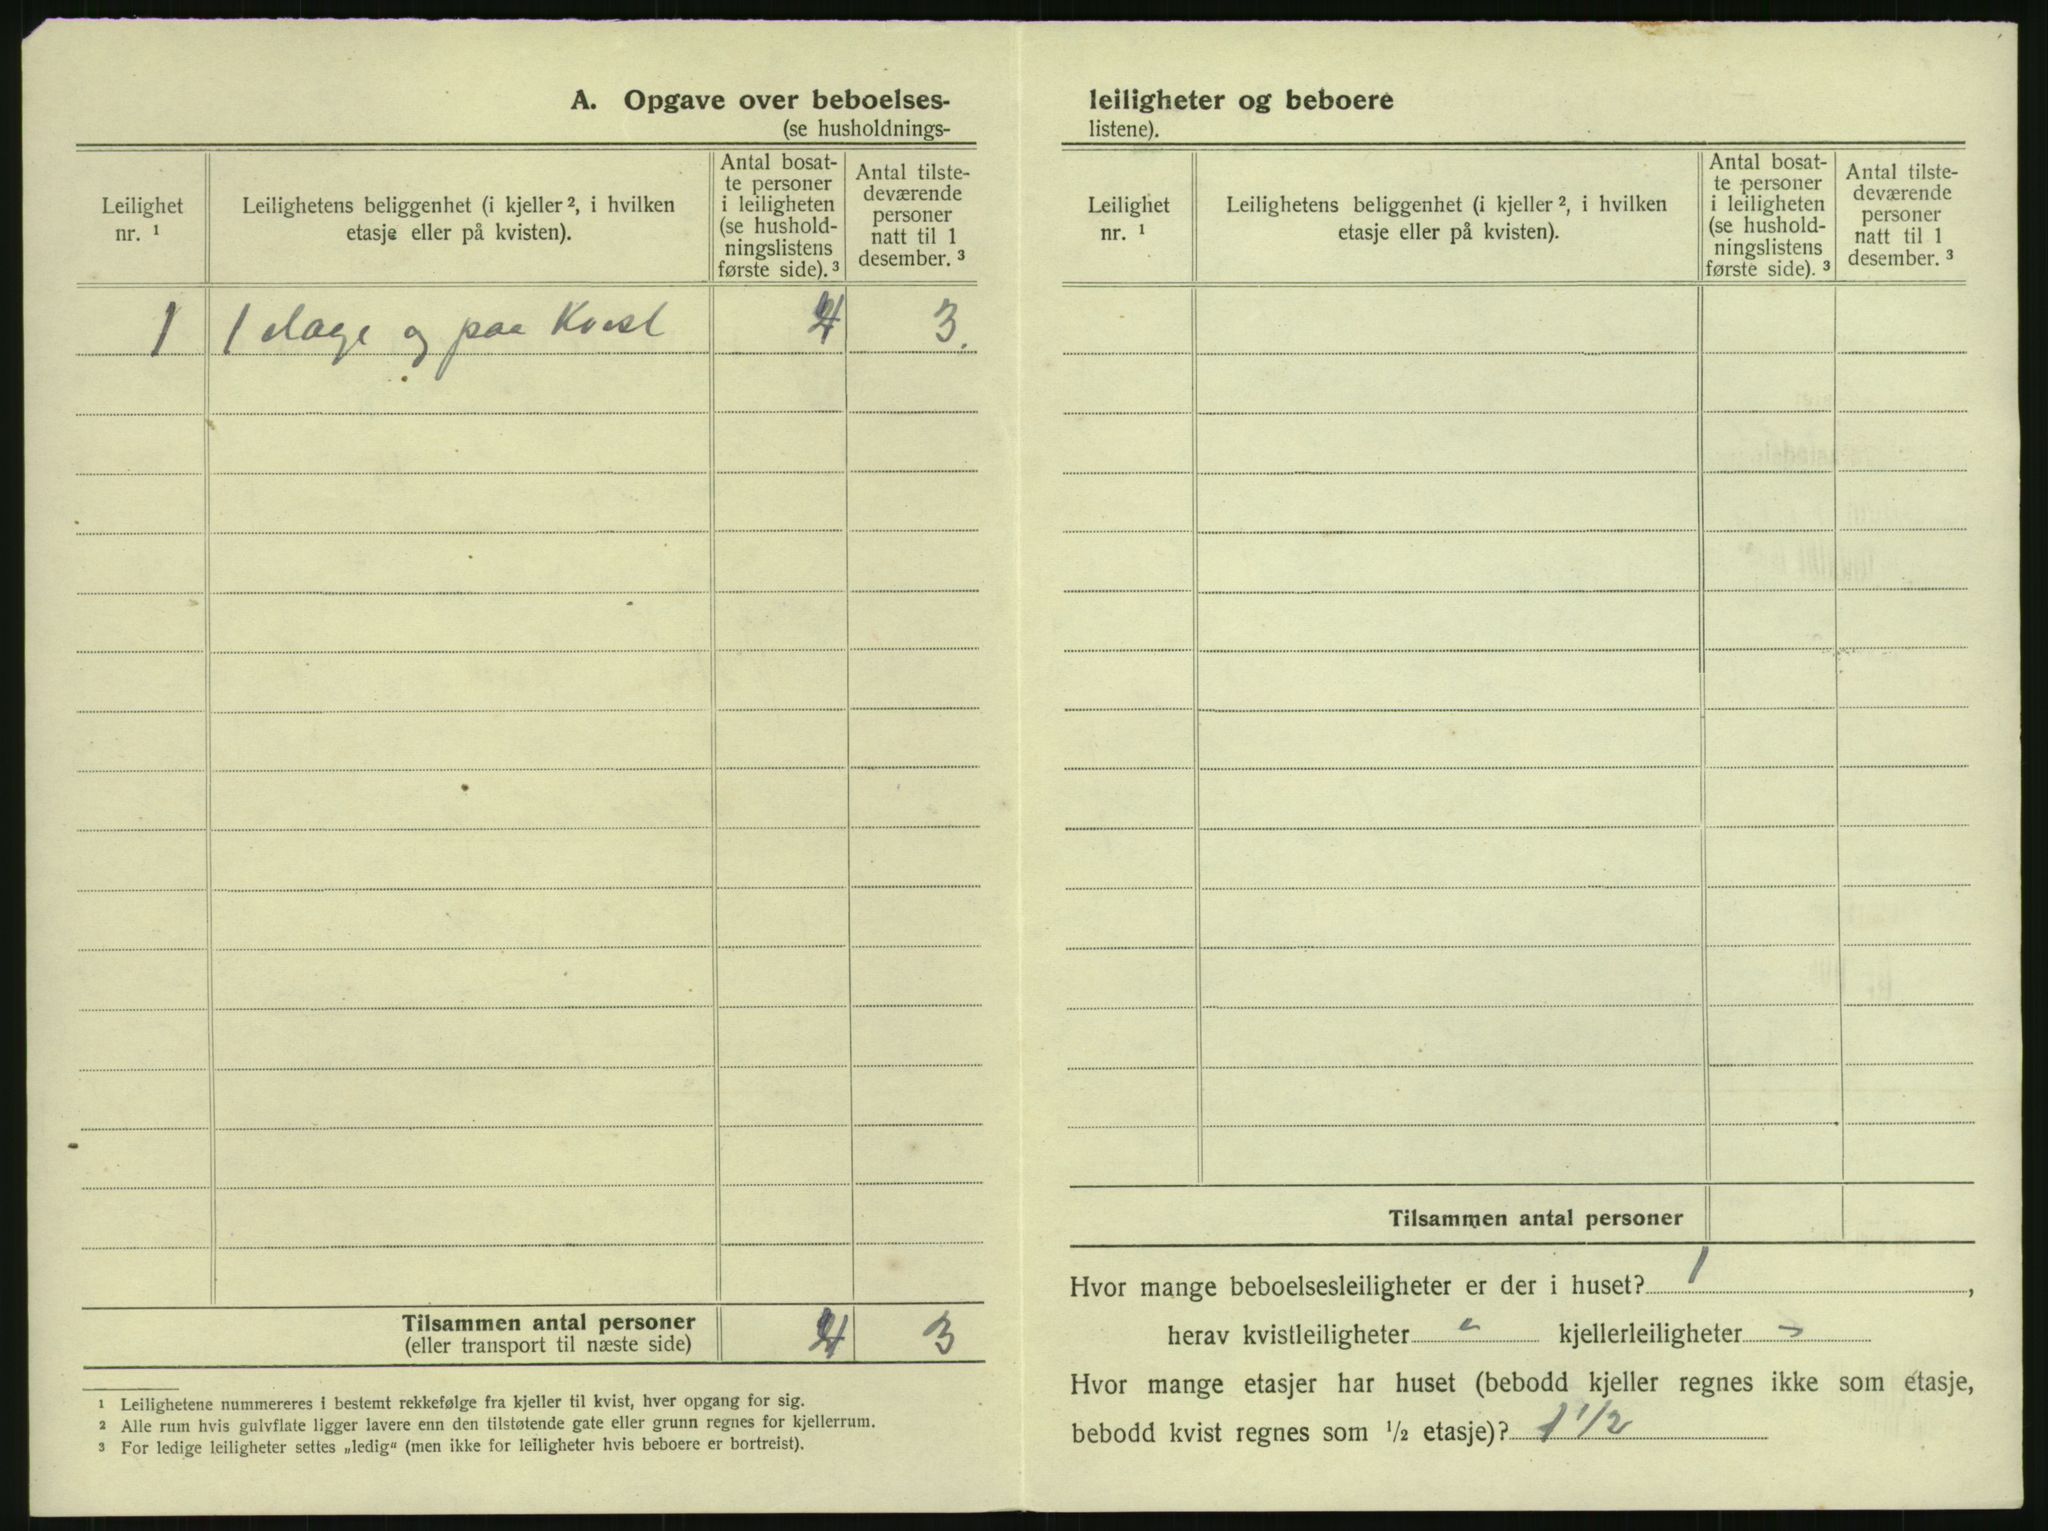 A. Opgave over beboelses-
(se husholdnings-
Leilighet
nr. ¹
Leilighetens beliggenhet (i kjeller ², i hvilken
etasje eller på kvisten).
Antal bosat-
te personer
i leiligheten
(se hushold-
ningslistens
første side). ³
Antal tilste-
deværende
personer
natt til 1
desember. ³
1 1 etage og paa Kvist 4 3.
Tilsammen antal personer 4 3
(eller transport til næste side)
¹ Leilighetene nummereres i bestemt rekkefølge fra kjeller til kvist, hver opgang for sig.
² Alle rum hvis gulvflate ligger lavere enn den tilstøtende gate eller grunn regnes for kjellerrum.
³ For ledige leiligheter settes „ledig“ (men ikke for leiligheter hvis beboere er bortreist).
leiligheter og beboere
listene).
Leilighet
nr. ¹
Leilighetens beliggenhet (i kjeller ², i hvilken
etasje eller på kvisten).
Antal bosat-
te personer
i leiligheten
(se hushold-
ningslistens
første side). ³
Antal tilste-
deværende
personer
natt til 1
desember. ³
Tilsammen antal personer
Hvor mange beboelsesleiligheter er der i huset? 1,
herav kvistleiligheter kjellerleiligheter
Hvor mange etasjer har huset (bebodd kjeller regnes ikke som etasje,
bebodd kvist regnes som ½ etasje)? 1 1/2